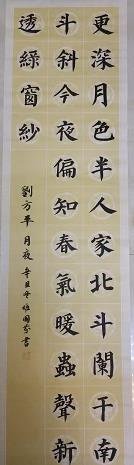 更深月色半人家北斗闌干南
斗斜今夜偏知春氣暖蟲聲新
透綠窗紗
劉方平月夜辛丑年 書